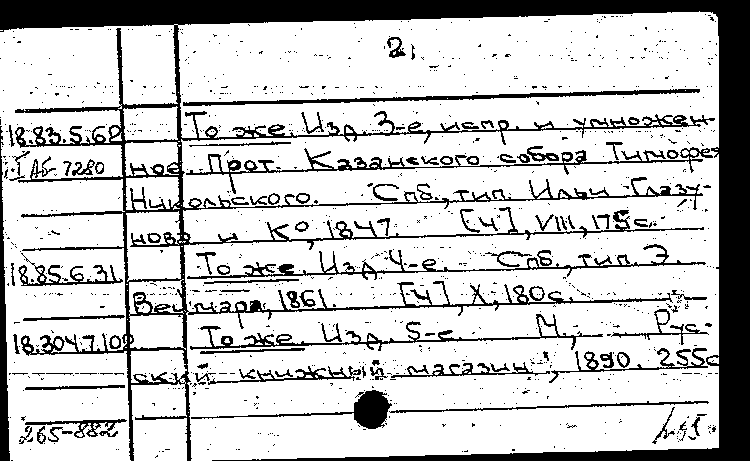 2.
18.83.5.62 То же. Изд. 3-е, испр. и умножен-
I АБ-7280 ное. Прот. Казанского собора Тимофея
Никольского. Спб., тип. Ильи Глазу-
нова и К°, 1847. [4], VIII, 175с.
18.85.6.31 То же. Изд. 4-е. Спб., тип. Э.
Веймара, 1861. [4], X, 180с.
18.304.7.102 То же. Изд. 5-е. М., Рус-
ский книжный магазин", 1890. 255с
265-882